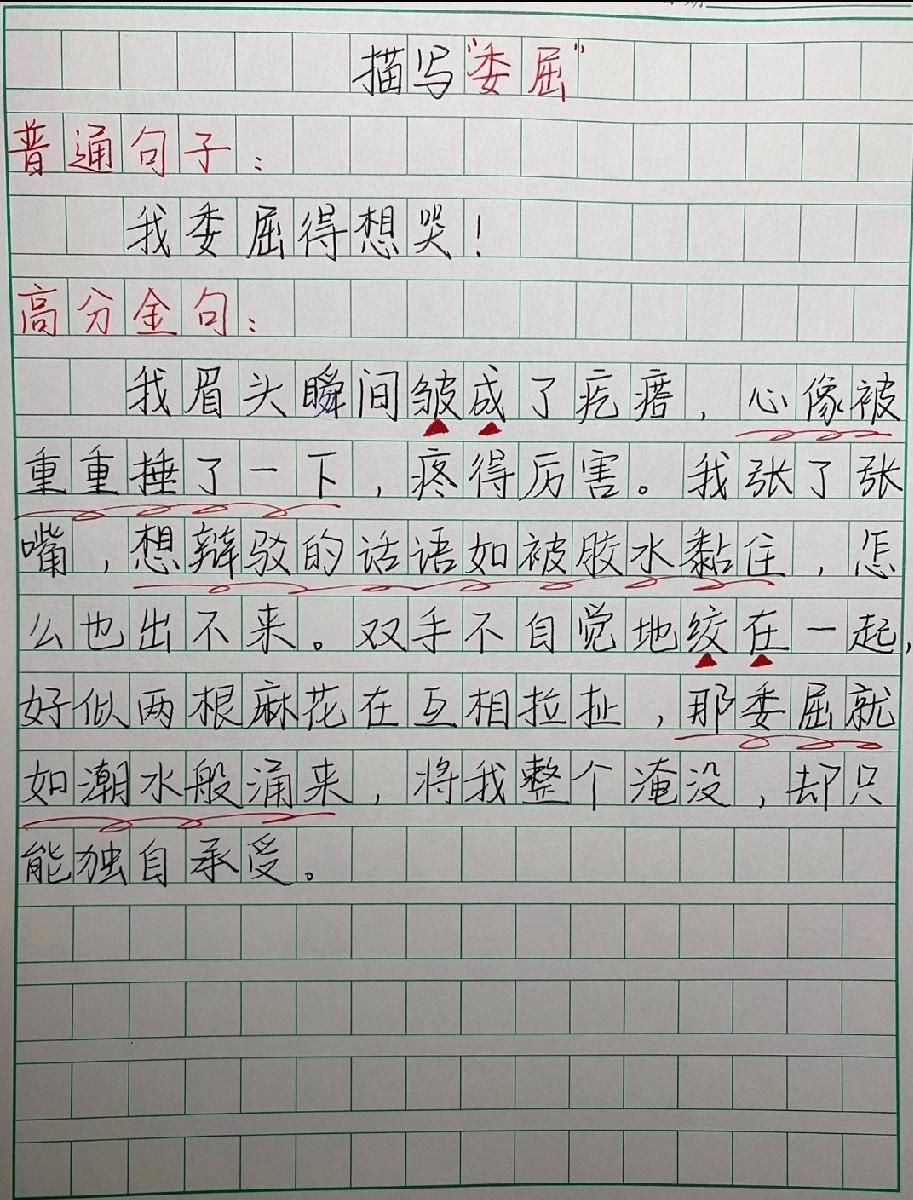 描写"委屈"
普通句子：
我委屈得想哭！
高分金句：
我眉头瞬间皱成了疙瘩，心像被
重重捶了一下，疼得厉害。我张了张
嘴，想辩驳的话语如被胶水黏住，怎
么也出不来。双手不自觉地绞在一起，
好似两根麻花在互相拉扯，那委屈就
如潮水般涌来，将我整个淹没，却只
能独自承受。